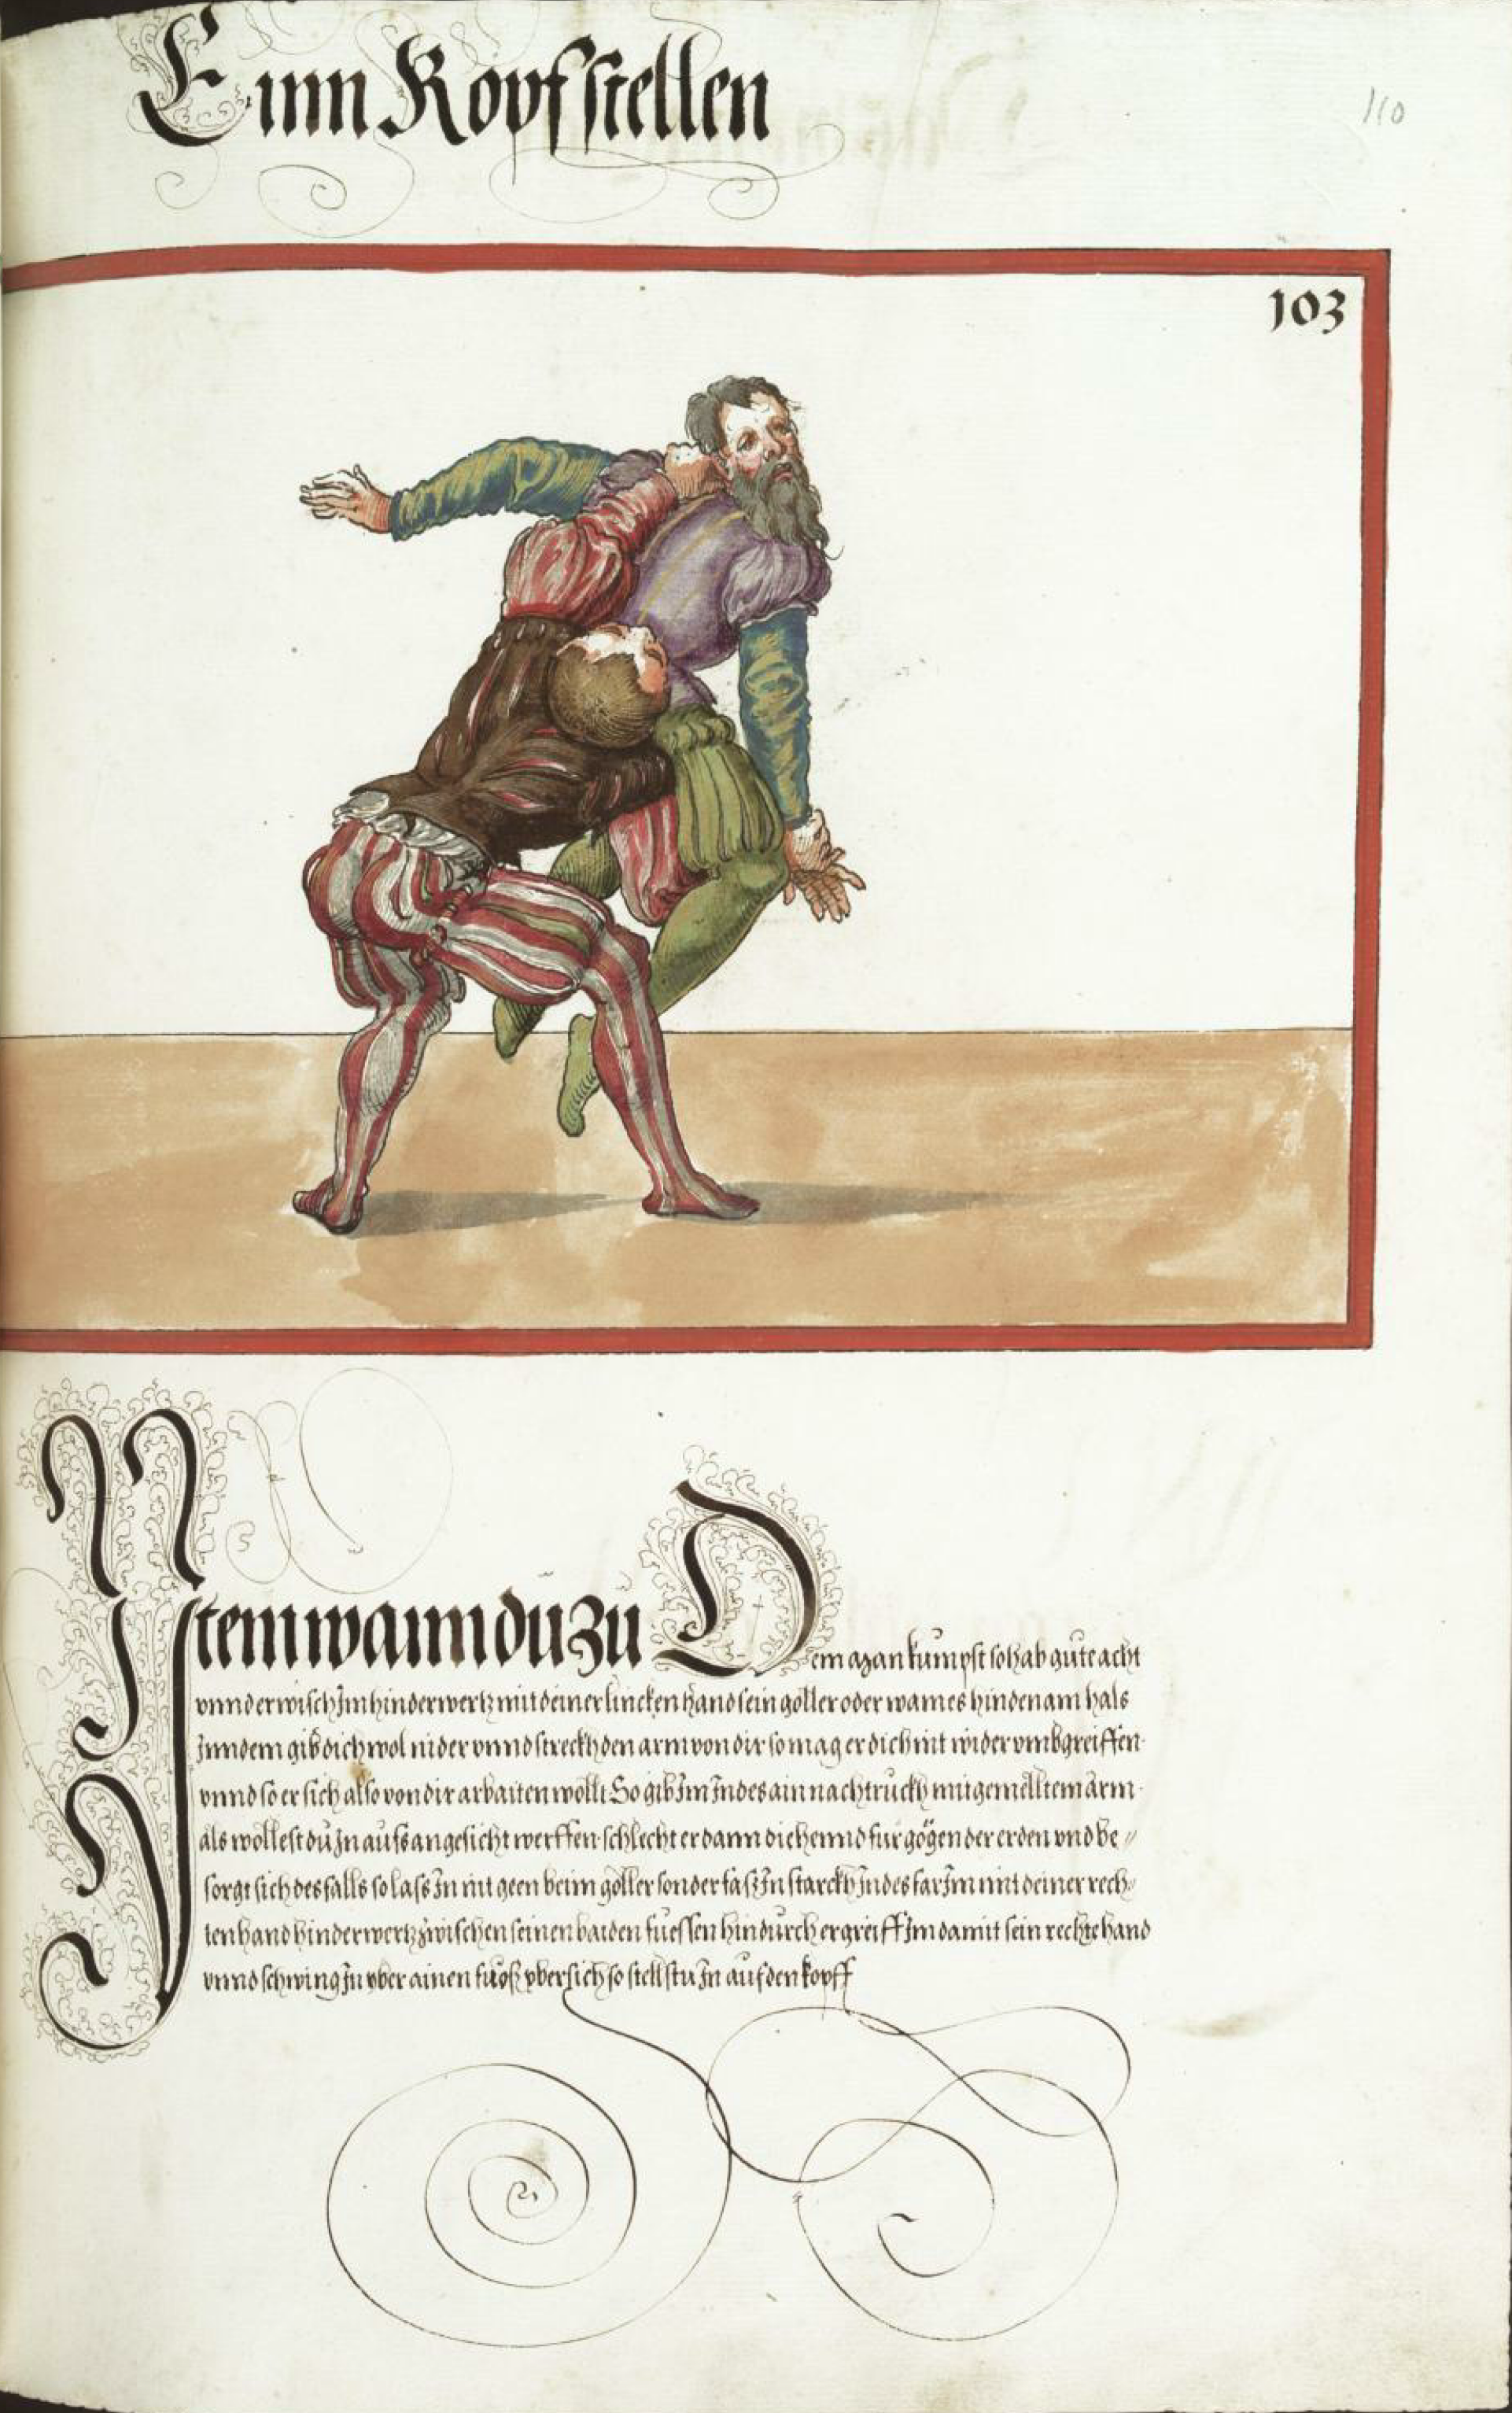 Ein Kopfstellen
110
103
Item wann du zu Dem man kumpst so hab gute acht
vnnd erwisch Im hinderwertz mit deiner lincken hand sein goller oder wames hinden am hals
Inndem gib dich wol nider vnnd streckh den arm von dir so mag er dich nit wider vmbgreiffen
vnnd so er sich also von dir arbaiten wöllt So gib Im Indes ain nachtruckh mit gemelltem arm
als wöllest du In aufs angesicht werffen schlecht er dann die hennd fur gögen der erden vnd be〃
sorgt sich des falls so lass In nit geen beim göller sonder fass In starckh Indes far Im mit deiner rech〃
ten hand hinderwertz zwischen seinen baiden fuessen hindurch ergreiff Im damit sein rechte hand
vnnd schwing In yber ainen fuoß ybersich so stellstu In auf den kopff